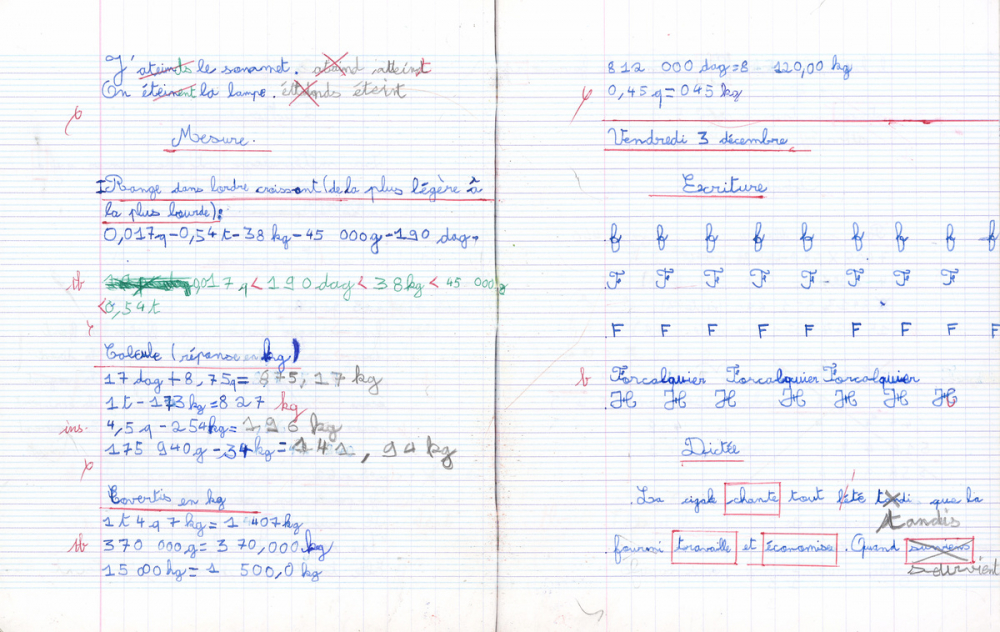 J'ateinds le sommet. atand atteint
On éteinent la lampe. éttends éteint
Mesure.
I Range dans lordre croissant (de la plus légère à
la plus lourde):
0,017q-0,54t-38 kg-45 000g-190 dag.
tb 0,017q < 190 dag < 38kg < 45 000g
< 0,54t
Calcule (réponse en kg)
17 dag + 8,75q = 875,17 kg
1t - 173kg = 827 kg
ins. 4,5q - 254kg = 196 kg
175 940g - 34kg = 141,94 kg
Covertis en kg
1t 4q 7kg = 1 407kg
tb 370 000g = 370,000 kg
15 00hg = 1 500,0 kg
812 000 dag = 8 120,00 kg
0,45q = 045 kg
Vendredi 3 décembre
Escriture
f f f f f f f f f
F F F F F F F F
F F F F F F F F F
b Forcalquier Forcalquier Forcalquier
H H H H H H H
Dictée
La cigale chante tout l'été tdi que la
tandis
fourmi travaille et économise. Quand surviens
survient